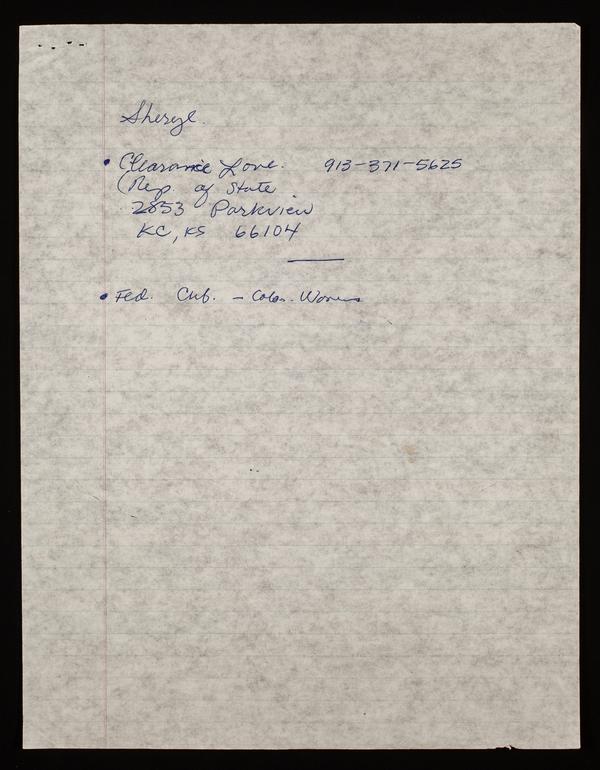 Sheryl.
• Clearance Love. 913-371-5625
(Rep. of State
2853 Parkview
KC, KS 66104
• Fed. Club. - Color. Womens